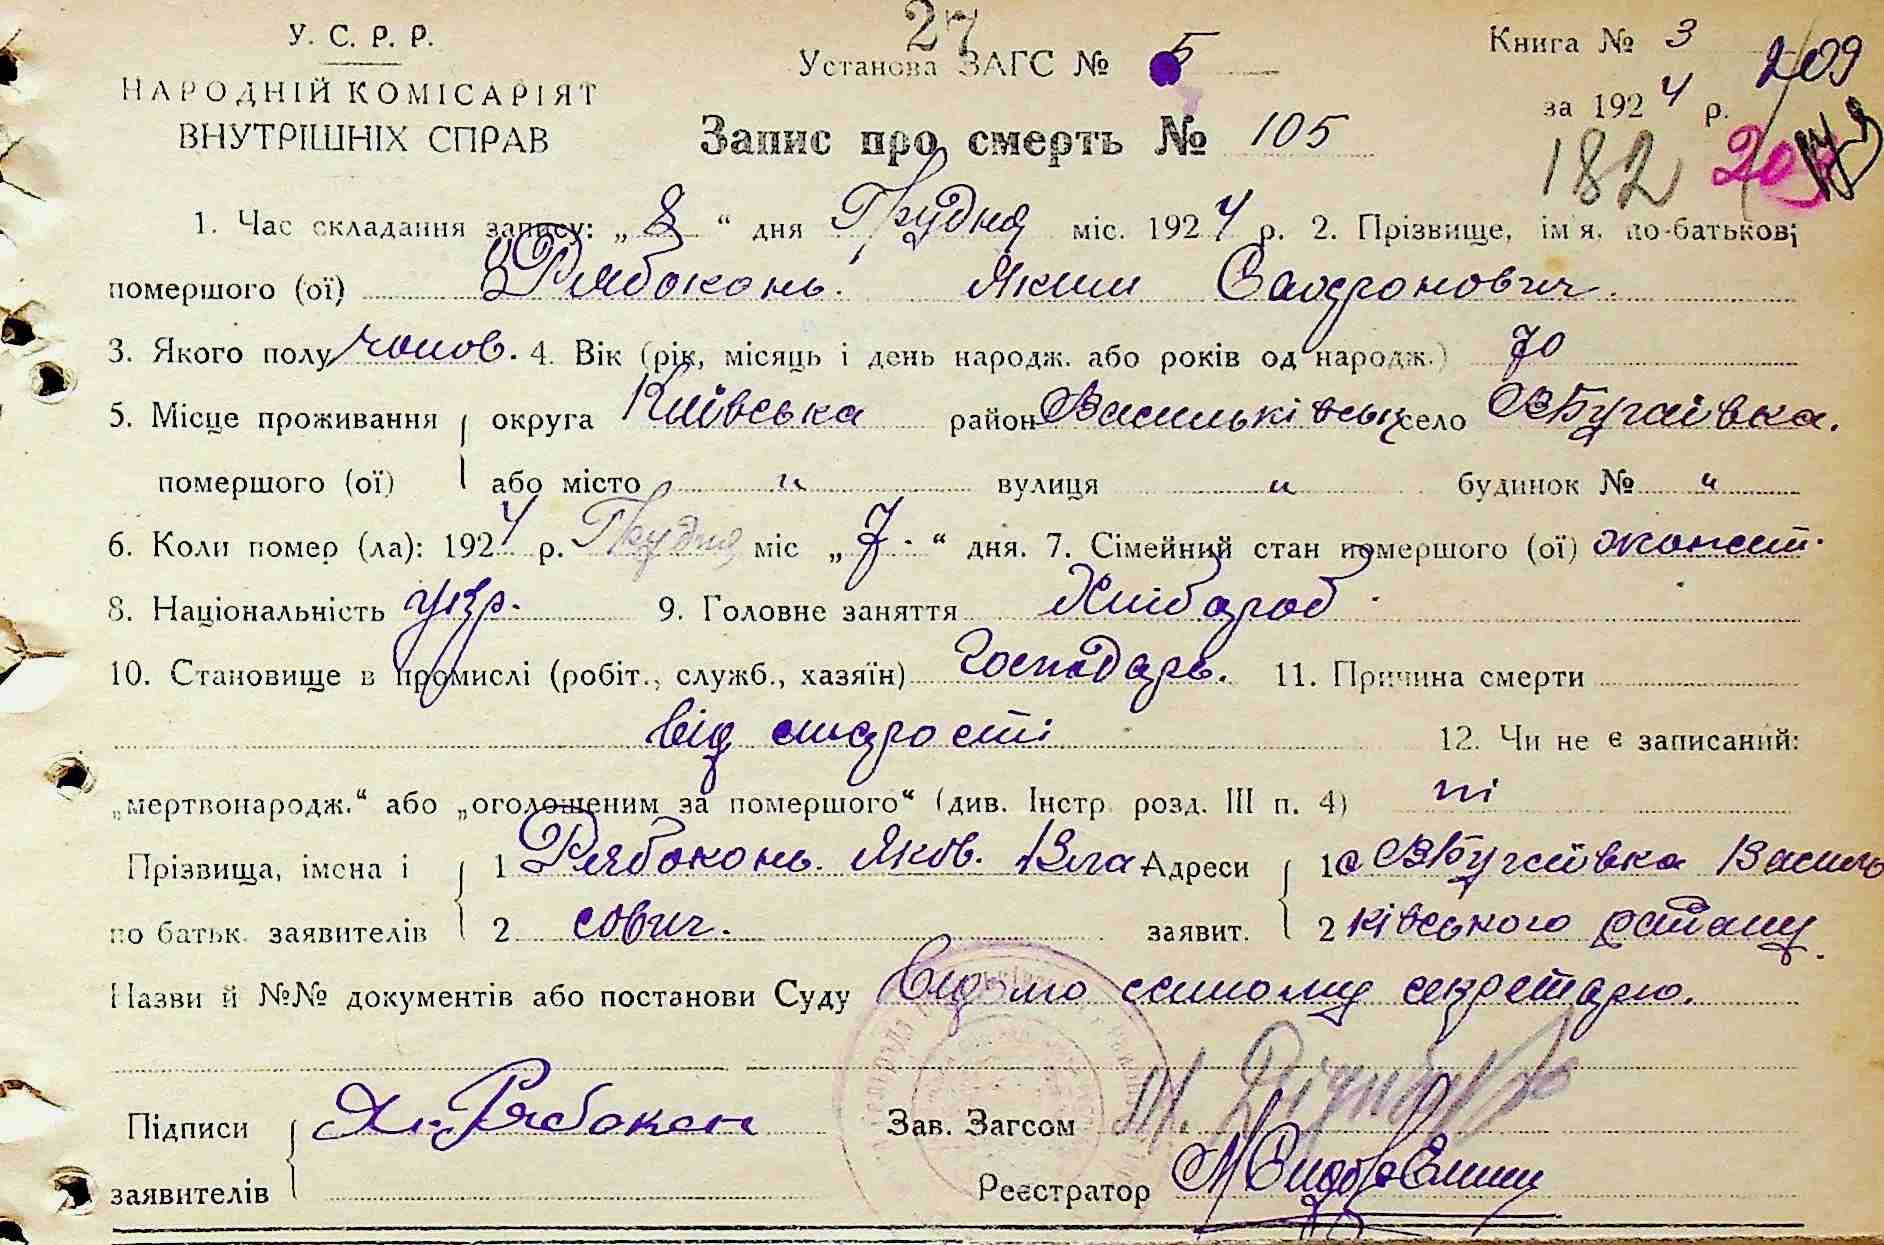 У. С. Р. Р.
НАРОДНІЙ КОМІСАРІЯТ
ВНУТРІШНІХ СПРАВ
27
Установа ЗАГС № 5
Книга № 3
209
за 1924 р.
182
Запис про смерть № 105
1. Час складання запису: „8“ дня Грудня міс. 1924 р. 2. Прізвище, ім'я, по-батькові
помершого (ої) Рябоконь Яким Сафронович.
3. Якого полу чолов. 4. Вік (рік, місяць і день народж. або років од народж.) 70
5. Місце проживання округа Київська район Васильківськ село Бугаївка.
помершого (ої) або місто " вулиця " будинок № "
6. Коли помер (ла): 1924 р. Грудня міс „7“ дня. 7. Сімейний стан помершого (ої) жонат.
8. Національність укр. 9. Головне заняття Хлібороб.
10. Становище в промислі (робіт., служб., хазяїн) Господарь. 11. Причина смерти
від старости 12. Чи не є записаний:
„мертвонародж.“ або „оголошеним за помершого“ (див. Інстр. розд. III п. 4) ні
Прізвища, імена і 1 Рябоконь Яков. Вла Адреси 1 с Бугаївка Василь
по батьк. заявителів 2 сович. заявит. 2 ківського району.
Назви й №№ документів або постанови Суду Відомо самому секретарю.
Підписи Як. Рябокон Зав. Загсом
заявителів Реєстратор